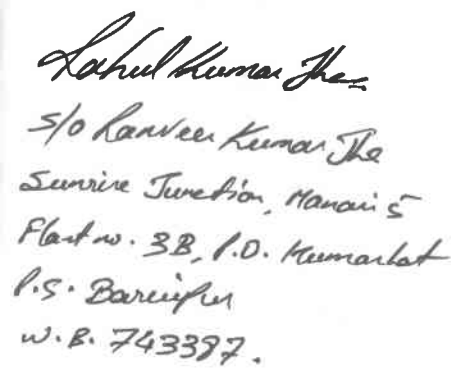 Rahul Kumar Jha
S/o Ranveer Kumar Jha
Sunrise Junction, Manav's
Flat no. 3B, P.O. Kumarhat
P.S. Baruipur
W.B. 743387.